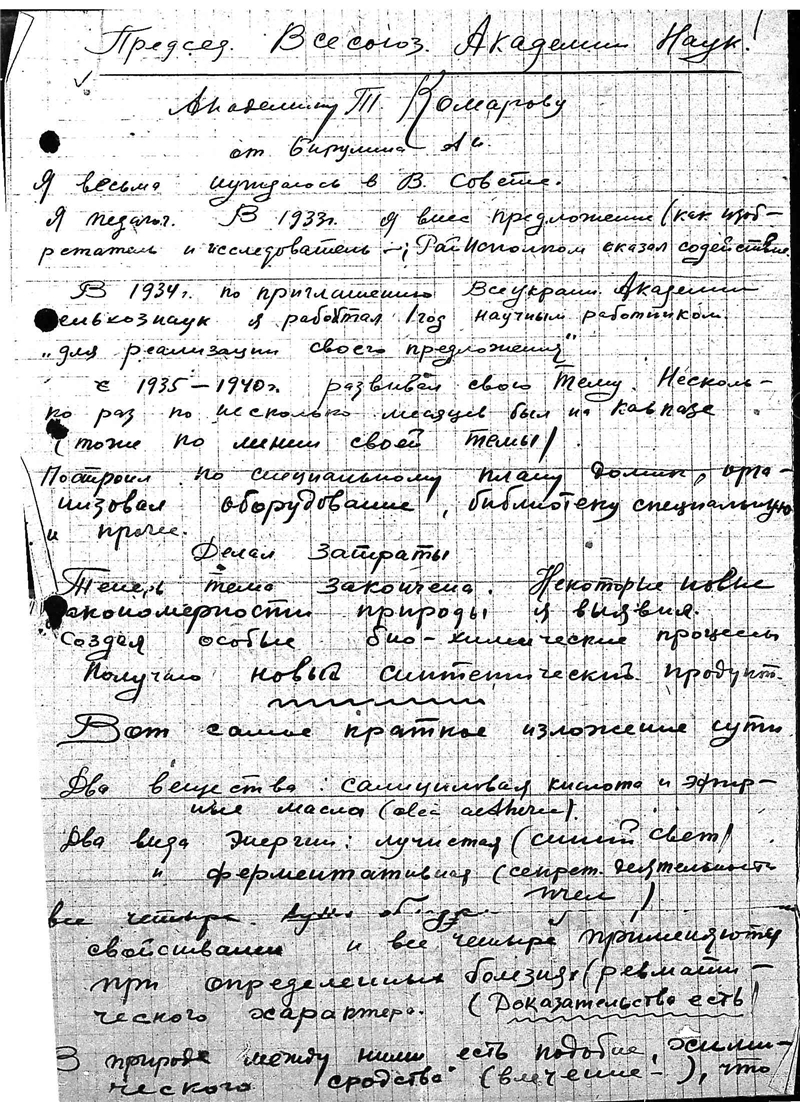 Председ. Всесоюз. Академии Наук!
Академику т Комарову
от Бирулина А И.
Я весьма нуждаюсь в В. Совете.
Я педагог. В 1933г. я внес предложение (как изоб-
ретатель и исследователь –; РайИсполком оказал содействие.
В 1934г. по приглашению Всеукраин. Академии
сельхознаук я работал 1 год научным работником
„для реализации своего предложения"
с 1935–1940г. развивал свою Тему. Несколь-
ко раз по несколько месяцев был на Кавказе
(тоже по линии своей темы)
Построил по специальному плану домик, орга-
низовал оборудование, библиотеку специальную
и прочее.
Делал Затраты
Теперь тема закончена. Некоторые новые
закономерности природы я выявил.
Создал особые био-химические процессы
Получаю новый синтетический продукт.
Вот самое краткое изложение сути
Два вещества: салициловая кислота и эфир-
ные масла (olea aetherea).
Два вида Энергии: лучистая (синий свет)
и ферментативная (секрет. деятельность
пчел)
все четыре
свойствами и все четыре применяются
при определенных болезнях (ревмати-
ческого характера. (Доказательства есть)
В природе между ними есть подобие „химиче-
ческого сродства" (влечение –), что